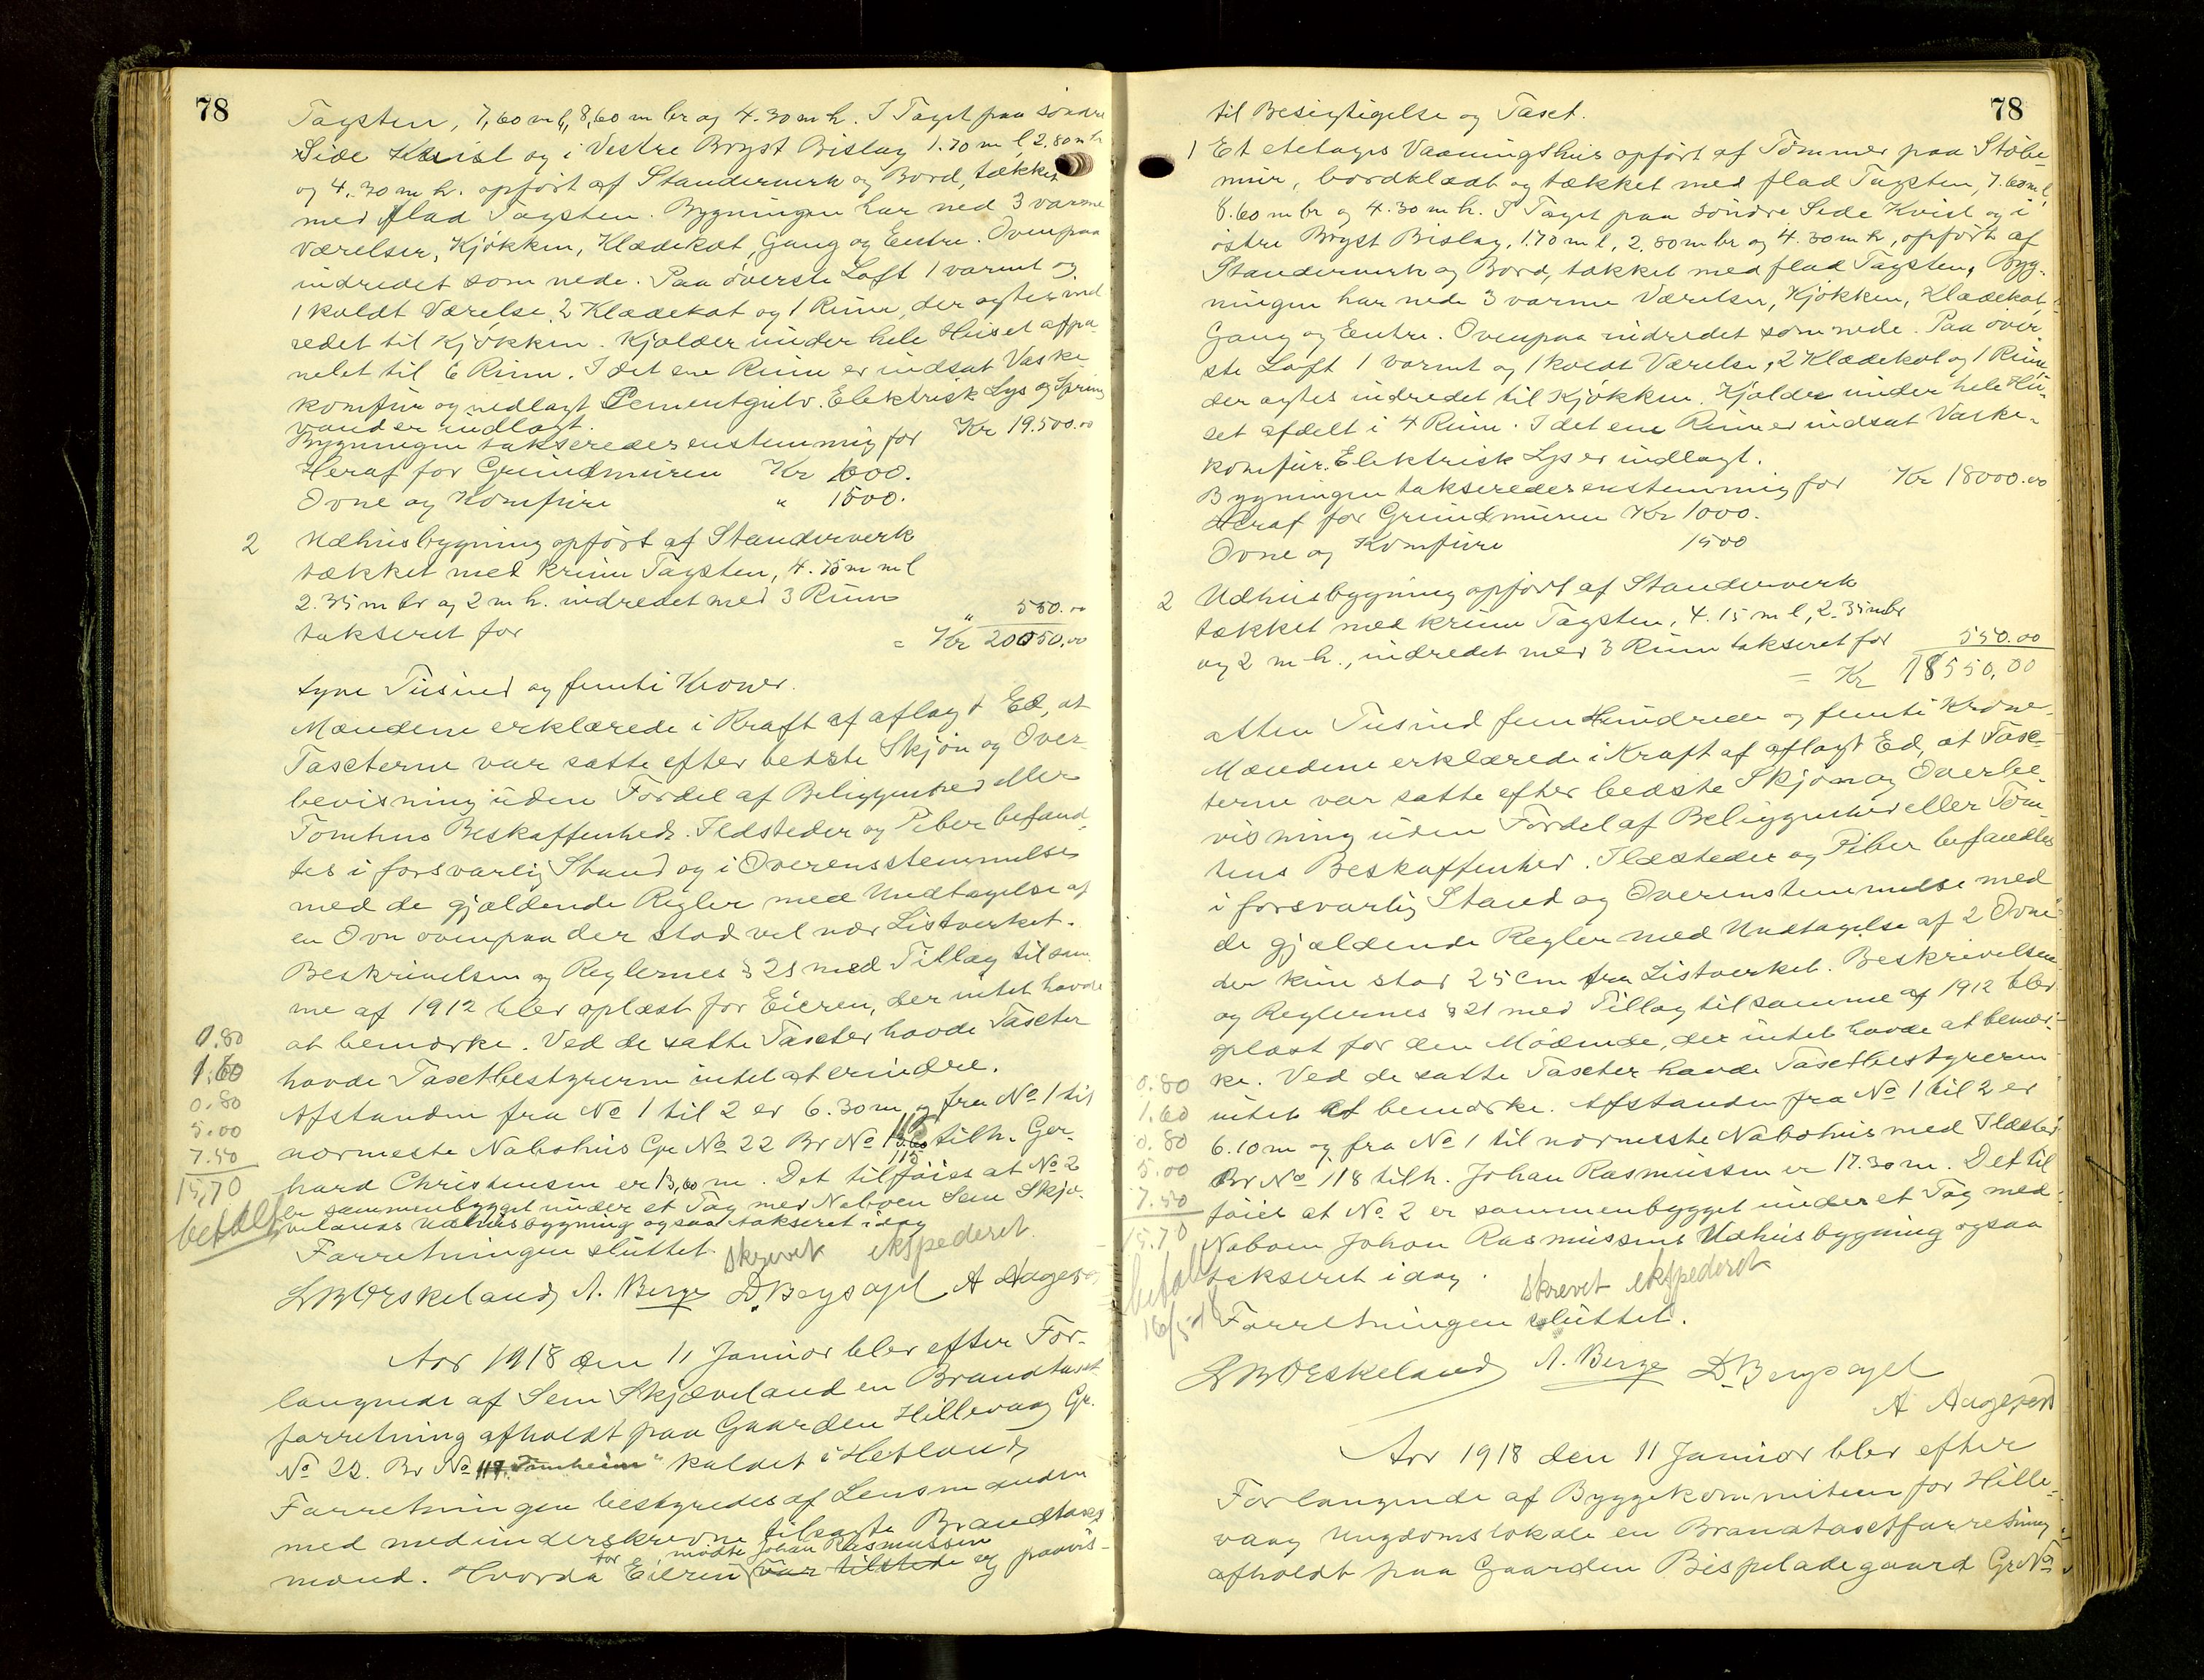 78
Tagsten, 7,60 m l, 8,60 m br og 4.30 m h. I Taget paa søndre
Side Kvist og i Vestre Bryst Bislag 1.70 m l, 2.80 m br
og 4.30 m h. opført af Standerverk og Bord, tækket
med flad Tagsten. Bygningen har ned 3 varme
Værelser, Kjøkken, Klædekot, Gang og Entre. Ovenpaa
indredet som nede. Paa øverste Loft 1 varmt og
1 koldt Værelse, 2 Klædekot og 1 Rum, der agtes ind
redet til Kjøkken. Kjælder under hele Huset afpa-
nelet til 6 Rum. I det ene Rum er indsat Vaske
komfur og nedlagt Cementgulv. Elektrisk Lys og Spring
vand er indlagt.
Bygningen takseredes enstemmig for Kr 19.500.00
Heraf for Grundmuren Kr 1000.
Ovne og Komfure " 1500.
2 Udhusbygning opført af Standerverk
tækket med krum Tagsten, 4.15 m l
2.35 m br og 2 m h. indredet med 3 Rum
takseret for " 550.00
= Kr 20050.00
tyve Tusind og femti Kroner.
Mændene erklærede i Kraft af aflagt Ed, at
Taxterne var satte efter bedste Skjøn og Over-
bevisning uden Fordel af Beliggenhed eller
Tomtens Beskaffenhed. Ildsteder og Piber befand-
tes i forsvarlig Stand og i Overensstemmelse
med de gjældende Regler med Undtagelse af
en Ovn ovenpaa der stod vel nær Listverket.
Beskrivelsen og Reglernes § 21 med Tillæg til sam-
me af 1912 blev oplæst for Eieren, der intet havde
at bemærke. Ved de satte Taxter havde Taxter
havde Taxtbestyreren intet at erindre.
Afstanden fra No 1 til 2 er 6.30 m og fra No 1 til
nærmeste Nabohus Gr No 22 Br No 115 tilh. Ger-
hard Christensen er 13,60 m. Det tilføies at No 2
er sammenbygget under et Tag med Naboen Sem Skjæ-
velands Udhusbygning ogsaa takseret idag
0.80
1.60
0.80
5.00
7.50
15,70
betalt
Forretningen sluttet. skrevet ekspederet
LBOrskeland A. Berge D. Bergsagel A Aagesen
Aar 1918 den 11 Januar blev efter For-
langende af Sem Skjæveland en Brandtaxt
forretning afholdt paa Gaarden Hillevaag Gr.
No 22. Br No 117. Simheim" kaldet i Hetland
Forretningen bestyredes af Lensmanden
med medunderskrevne tilsagte Brandtaxt
mænd. Hvorda for Eieren mødte Johan Rasmussen var tilstede og paavis-
78
til Besigtigelse og Taxt.
1 Et etetages Vaaningshus opført af Tømmer paa Støbe-
mur, bordklædt og tækket med flad Tagsten, 7.60 m l,
8.60 m br og 4.30 m h. I Taget paa søndre Side Kvist og i
østre Bryst Bislag, 1.70 m l, 2.80 m br og 4.30 m h, opført af
Standerverk og Bord, tækket med flad Tagsten. Byg-
ningen har nede 3 varme Værelser, Kjøkken, Klædekot,
Gang og Entre. Ovenpaa indredet som nede. Paa øver-
ste Loft 1 varmt og 1 koldt Værelse, 2 Klædekot og 1 Rum,
der agtes indredet til Kjøkken. Kjælder under hele Hu-
set afdelt i 4 Rum. I det ene Rum er indsat Vaske-
komfur. Elektrisk Lys er indlagt.
Bygningen takseredes enstemmig for Kr 18000.00
Heraf for Grundmuren Kr 1000.
Ovne og Komfure 1500
2 Udhusbygning opført af Standerverk
tækket med krum Tagsten, 4.15 m l, 2.35 m br
og 2 m h., indredet med 3 Rum takseret for 550.00
= Kr 18550,00
atten Tusind fem Hundrede og femti Kroner
Mændene erklærede i Kraft af aflagt Ed, at Tax-
terne var satte efter bedste Skjøn og Overbe-
visning uden Fordel af Beliggenhed eller Tom-
tens Beskaffenhed. Ildsteder og Piber befandtes
i forsvarlig Stand og Overenstemmelse med
de gjældende Regler med Undtagelse af 2 Ovne
der kun stod 25 cm fra Listverket. Beskrivelsen
og Reglernes § 21 med Tillæg til samme af 1912 blev
oplæst for den Mødende, der intet havde at bemær-
ke. Ved de satte Taxter havde Taxtbestyreren
intet at bemærke. Afstanden fra No 1 til 2 er
6.10 m og fra No 1 til nærmeste Nabohus med Ildsted
Br No 118 tilh. Johan Rasmussen er 17.30 m. Det til
føies at No. 2 er sammenbygget under et Tag med
Naboen Johan Rasmussens Udhusbygning ogsaa
takseret idag.
0.80
1.60
0.80
5.00
7.50
15.70
betalt
16/5-18
skrevet ekspederet
Forretningen sluttet.
LBOrskeland A. Berge D. Bergsagel
A Aagesen
Aar 1918 den 11 Januar blev efter
Forlangende af Byggekommiteen for Hille-
vaag Ungdomslokale en Brandtaxtforretning
afholdt paa Gaarden Bispeladegaard Gr No